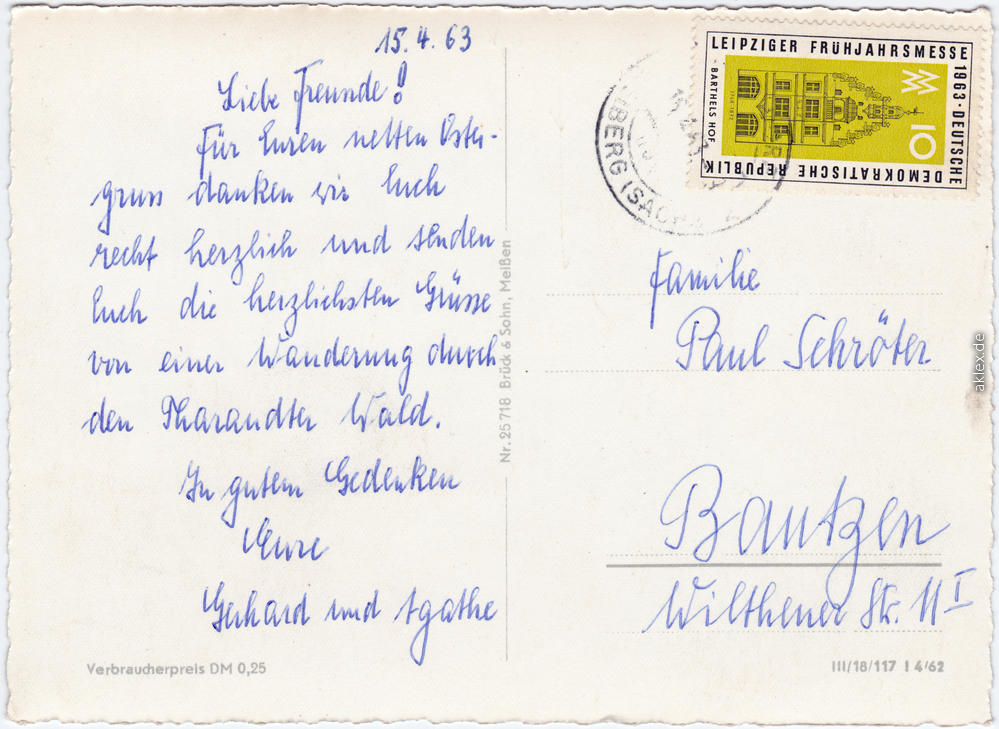 15. 4. 63
Liebe Freunde!
Für Euren netten Oster-
gruss danken wir Euch
recht herzlich und senden
Euch die herzlichsten Grüsse
von einer Wanderung durch
den Tharandter Wald.
In gutem Gedenken
Eure
Gerhard und Agathe
Verbraucherpreis DM 0,25
Nr. 25 718 Brück & Sohn, Meißen
LEIPZIGER FRÜHJAHRSMESSE
1963 · DEUTSCHE
DEMOKRATISCHE REPUBLIK
· BARTHELS HOF ·
10
BERG (SACH
Familie
Paul Schröter
Bautzen
Wilthener Str. 11 I
III/18/117 I 4/62
aklex.de